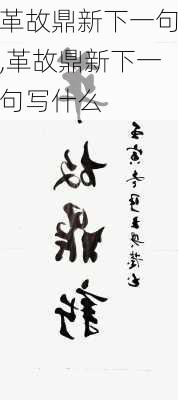 革故鼎新下一句
,革故鼎新下一
句写什么
革
故
鼎
新
壬寅